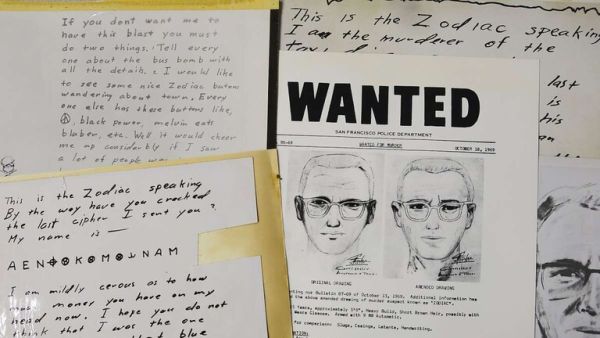 If you dont want me to
have this blast you must
do two things. Tell every
one about the bus bomb with
all the details. 2 I would like
to see some nice Zodiac butons
wandering about town. Every
one else has these buttons like,
black power, melvin eats
blubber, etc. Well it would cheer
me up considerbly if I saw
a lot of people
This is the Zodiac speaking
I am the murderer of the
last
is
his
an
This is the Zodiac speaking
By the way have you cracked
the last cipher I sent you?
My name is —
A E N ⌖ ⊕ K ⊕ M ⊕ N A M
I am mildly cerous as to how
money you have on my
head now. I hope you do not
think that I was the one
that blue
WANTED
SAN FRANCISCO POLICE DEPARTMENT
WANTED FOR MURDER
OCTOBER 18, 1969
ORIGINAL DRAWING
AMENDED DRAWING
our Bulletin 87-69 of October 13, 1969. Additional information has
the above amended drawing of murder suspect known as "ZODIAC".
Years, approximately 5'8", Heavy Build, Short Brown Hair, possibly with
Glasses. Armed with 9 MM Automatic.
for comparison: Slugs, Casings, Latents, Handwriting.